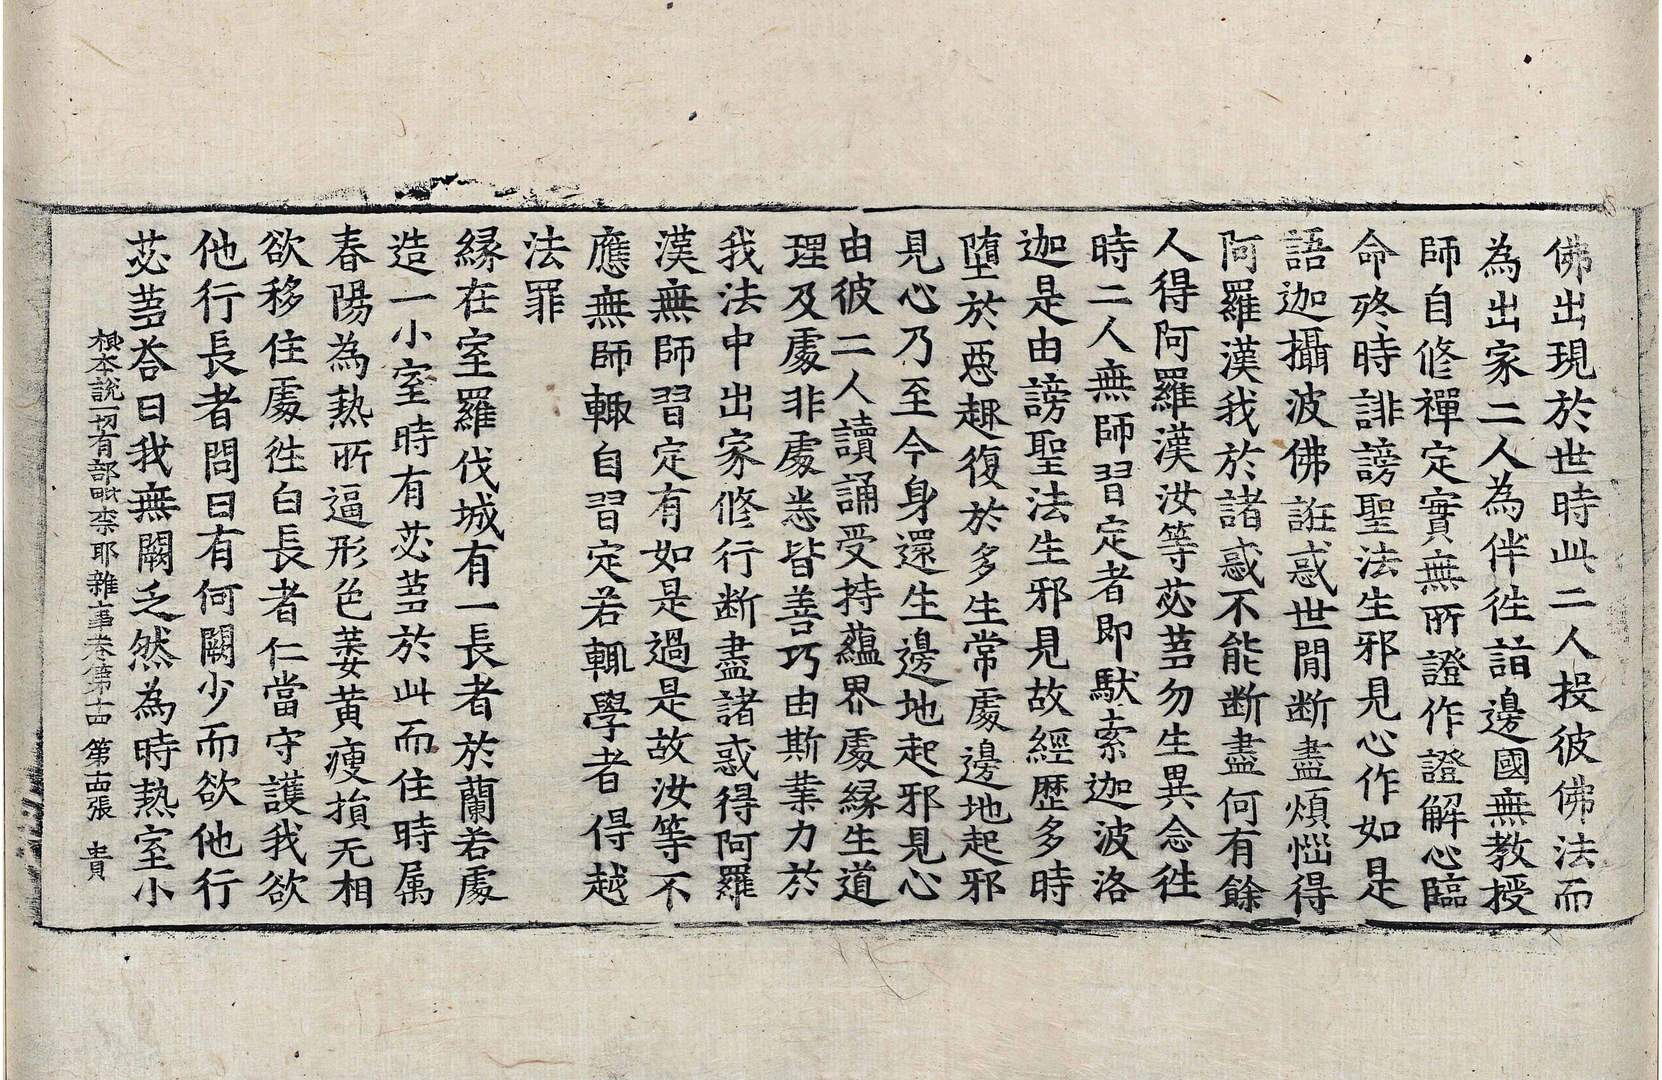 佛出現於世時此二人投彼佛法而
為出家二人為伴徃詣邊國無教授
師自修禪定實無所證作證解心臨
命終時誹謗聖法生邪見心作如是
語迦攝波佛誑惑世間断盡煩惱得
阿羅漢我於諸惑不能断盡何有餘
人得阿羅漢汝等苾蒭勿生異念徃
時二人無師習定者即馱索迦波洛
迦是由謗聖法生邪見故經歷多時
墮於惡趣復於多生常處邊地起邪
見心乃至今身還生邊地起邪見心
由彼二人讀誦受持蘊界處緣生道
理及處非處悉皆善巧由斯業力於
我法中出家修行断盡諸惑得阿羅
漢無師習定有如是過是故汝等不
應無師輙自習定若輙學者得越
法罪
緣在室羅伐城有一長者於蘭若處
造一小室時有苾蒭於此而住時属
春陽為熱所逼形色萎黄瘦損无相
欲移住處徃白長者仁當守護我欲
他行長者問曰有何闕少而欲他行
苾蒭荅曰我無闕乏然為時熱室小
根本說一切有部毗柰耶雜事卷第十四 第十四張 貴